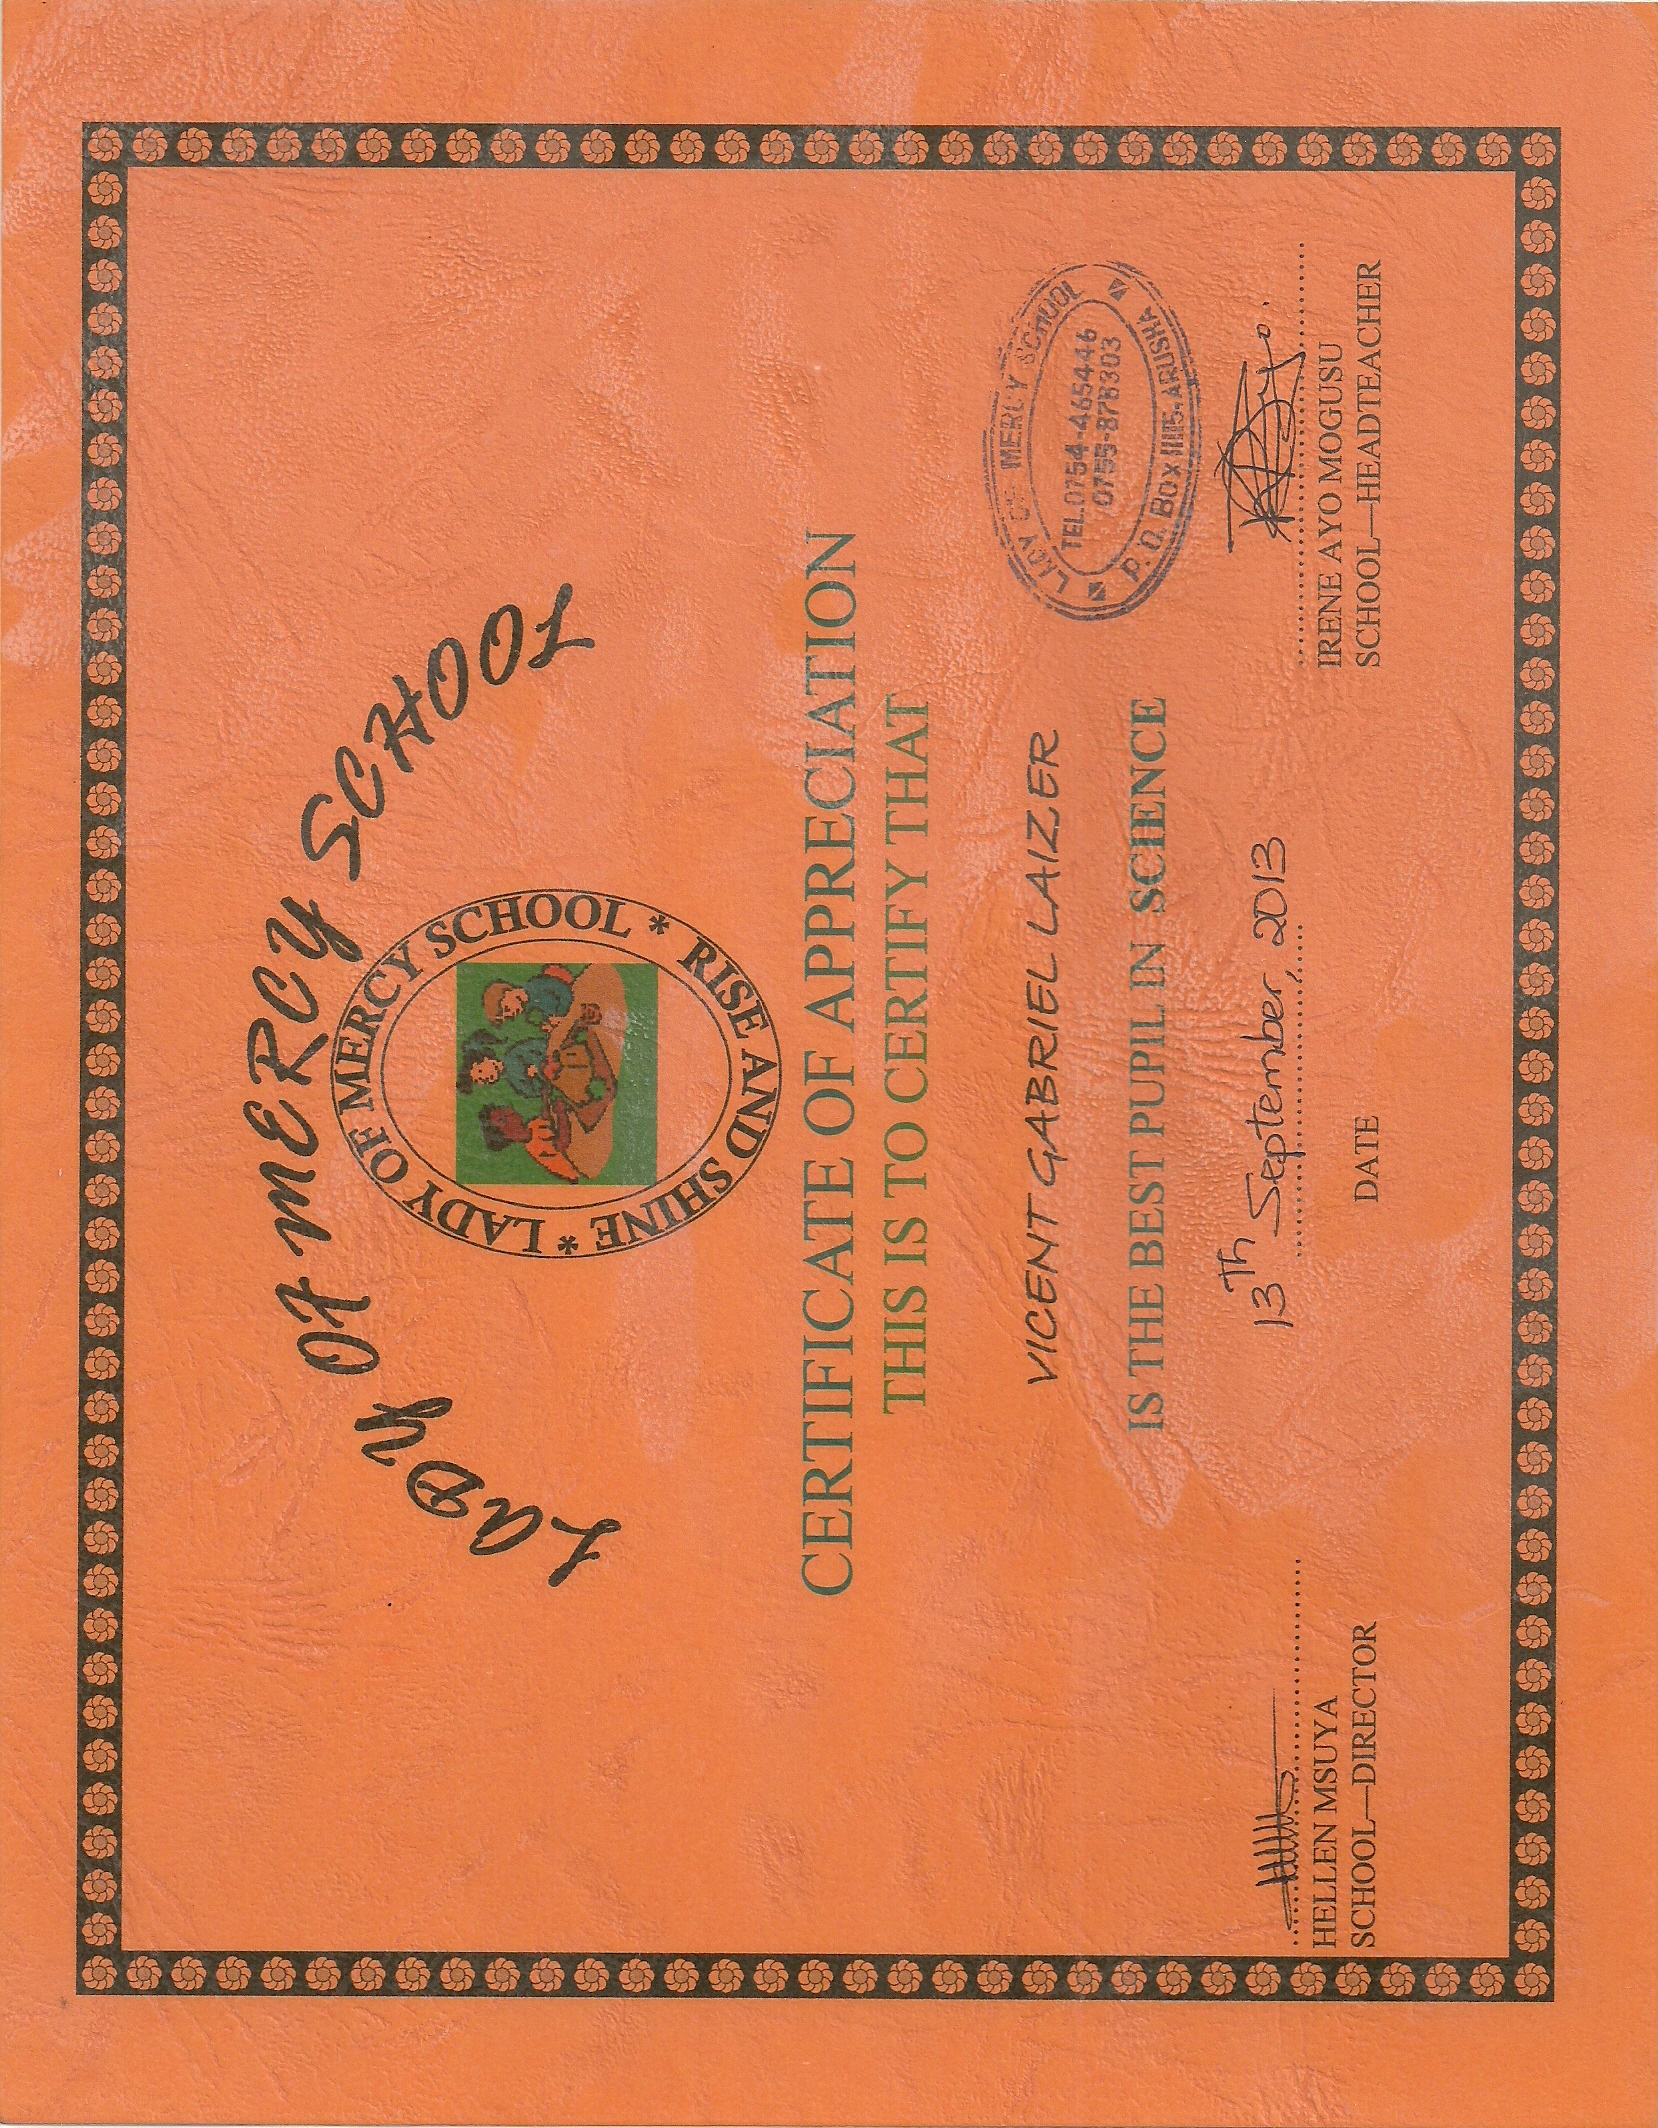 LADY OF MERCY SCHOOL
* LADY OF MERCY SCHOOL * RISE AND SHINE
CERTIFICATE OF APPRECIATION
THIS IS TO CERTIFY THAT
VICENT GABRIEL LAIZER
IS THE BEST PUPIL IN SCIENCE
LADY OF MERCY SCHOOL
TEL.0754-465446
0755-878303
P. O. Box 11115, ARUSHA
13th September, 2013
HELLEN MSUYA
SCHOOL—DIRECTOR
DATE
IRENE AYO MOGUSU
SCHOOL—HEADTEACHER